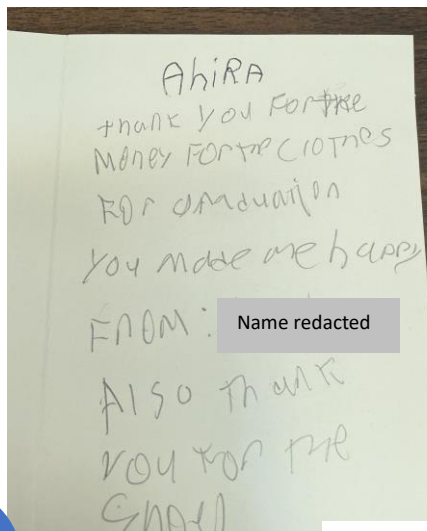 AhiRA
thank you For the
Money For the clothes
For graduation
You made me happy
FROM:
Name redacted
Also Thank
you for the